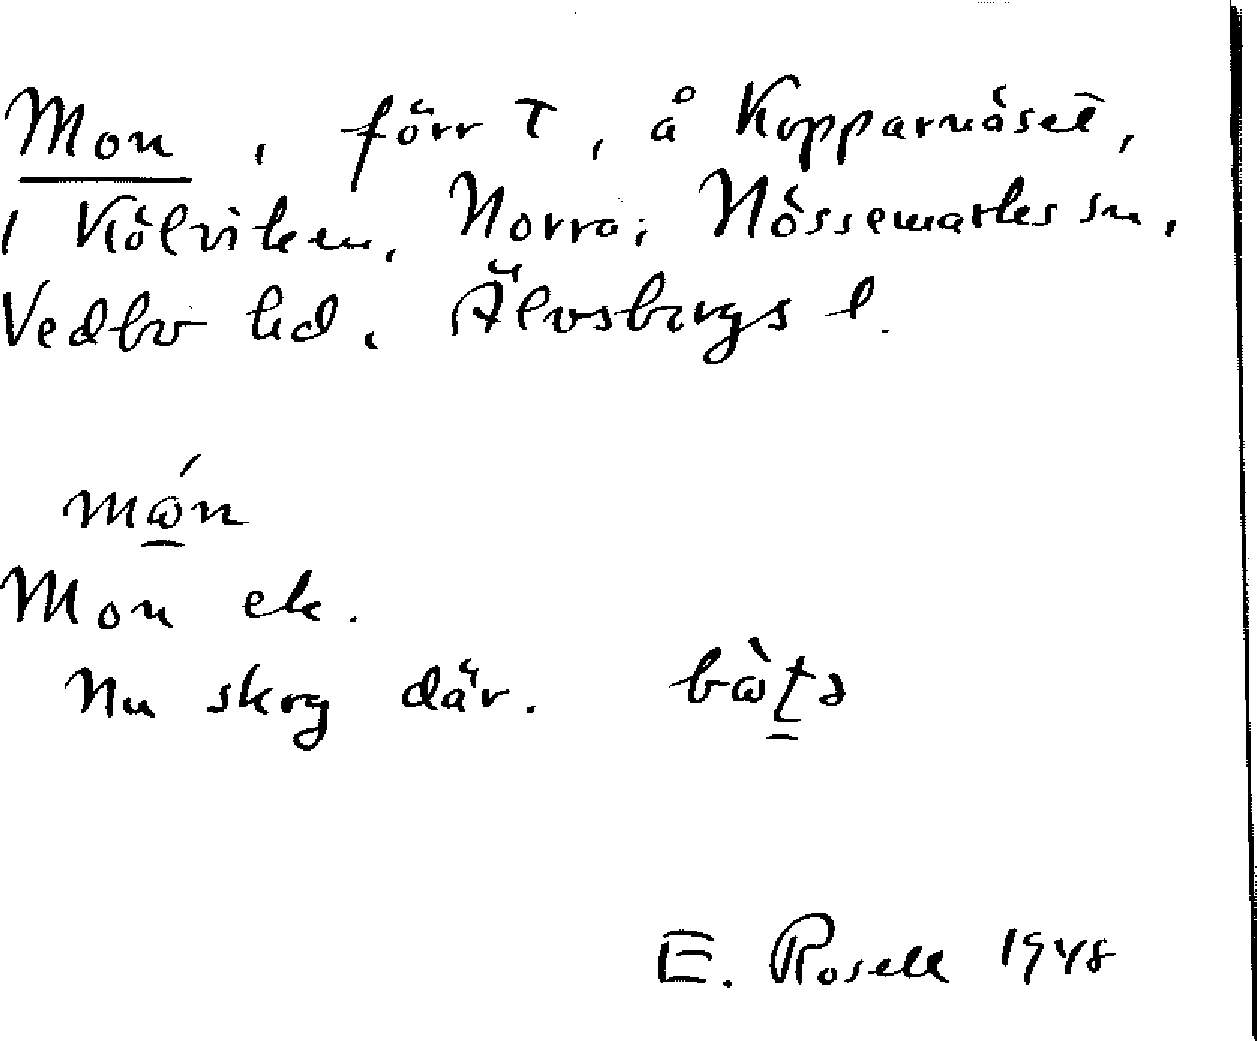 Mon, förr T, å Kopparnäset,
i Kölviken, Norra; Nössemarks sn,
Vedbo hd, Älvsborgs l.
mώ̲n
Mon ek.
Nu skog där. bὼt̲ə
E. Rosell 1948